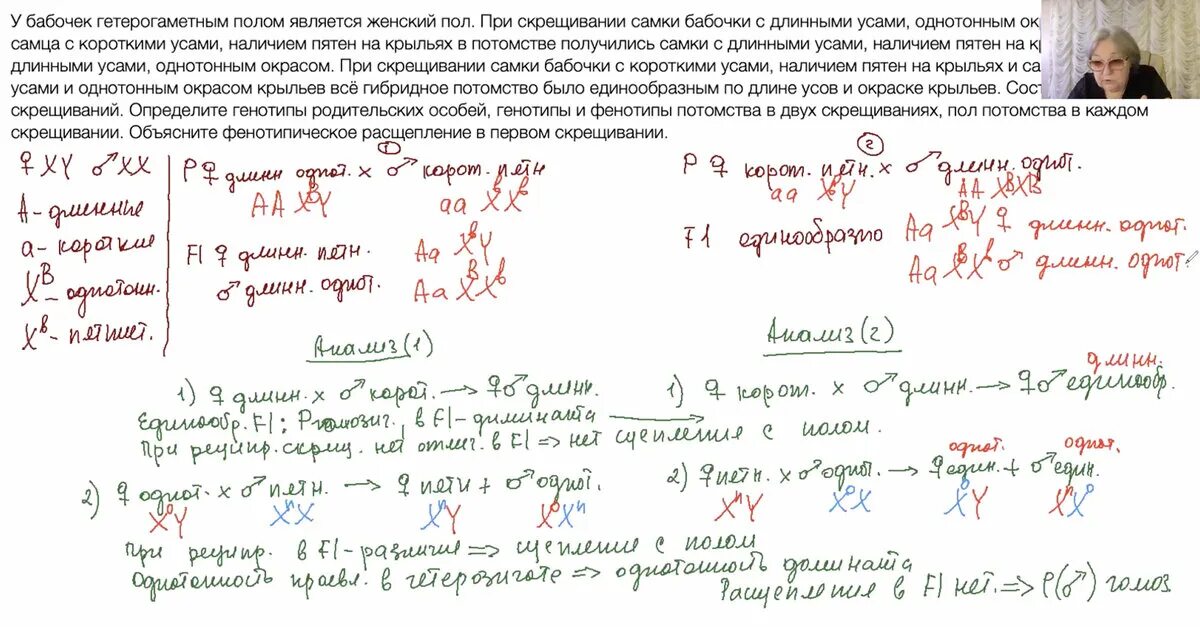 У бабочек гетерогаметным полом является женский пол. При скрещивании самки бабочки с длинными усами, однотонным ок
самца с короткими усами, наличием пятен на крыльях в потомстве получились самки с длинными усами, наличием пятен на к
длинными усами, однотонным окрасом. При скрещивании самки бабочки с короткими усами, наличием пятен на крыльях и са
усами и однотонным окрасом крыльев всё гибридное потомство было единообразным по длине усов и окраске крыльев. Сос
скрещиваний. Определите генотипы родительских особей, генотипы и фенотипы потомства в двух скрещиваниях, пол потомства в каждом
скрещивании. Объясните фенотипическое расщепление в первом скрещивании.
♀ XY ♂ XX
A - длинные
a - короткие
Xᴮ - однотонн.
Xᵇ - пятнист.
1
P ♀ длинн однот. x ♂ корот. пятн
AA XᴮY aa XᵇXᵇ
F1 ♀ длинн. пятн. Aa XᵇY
♂ длинн. однот. Aa XᴮXᵇ
2
P ♀ корот. пятн. x ♂ длинн. однот.
aa XᵇY AA XᴮXᴮ
F1 единообразно Aa XᴮY ♀ длинн. однот.
Aa XᴮXᵇ ♂ длинн. однот
Анализ (1)
1) ♀ длинн. x ♂ корот. → ♀♂ длинн.
Единообр. F1: P гомозиг., в F1 - доминанта
При реципр. скрещ. нет отлич. в F1 => нет сцепления с полом.
2) ♀ однот. x ♂ пятн. → ♀ пятн + ♂ однот.
XᵒY XⁿX XⁿY XᵒXⁿ
При реципр. в F1 - различие => сцепление с полом
Однотонность проявл. в гетерозиготе => однотонность доминанта
Анализ (2)
длинн.
1) ♀ корот. x ♂ длинн. → ♀♂ единообр.
однот. однот.
2) ♀ пятн. x ♂ однот. → ♀ един. + ♂ един.
XⁿY XᵒX XᵒY XⁿXᵒ
Расщепления в F1 нет. => P(♂) гомоз